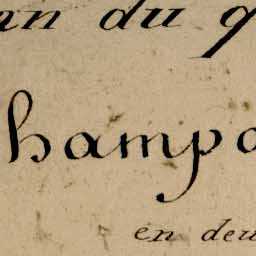 an du q
hampa
en deu